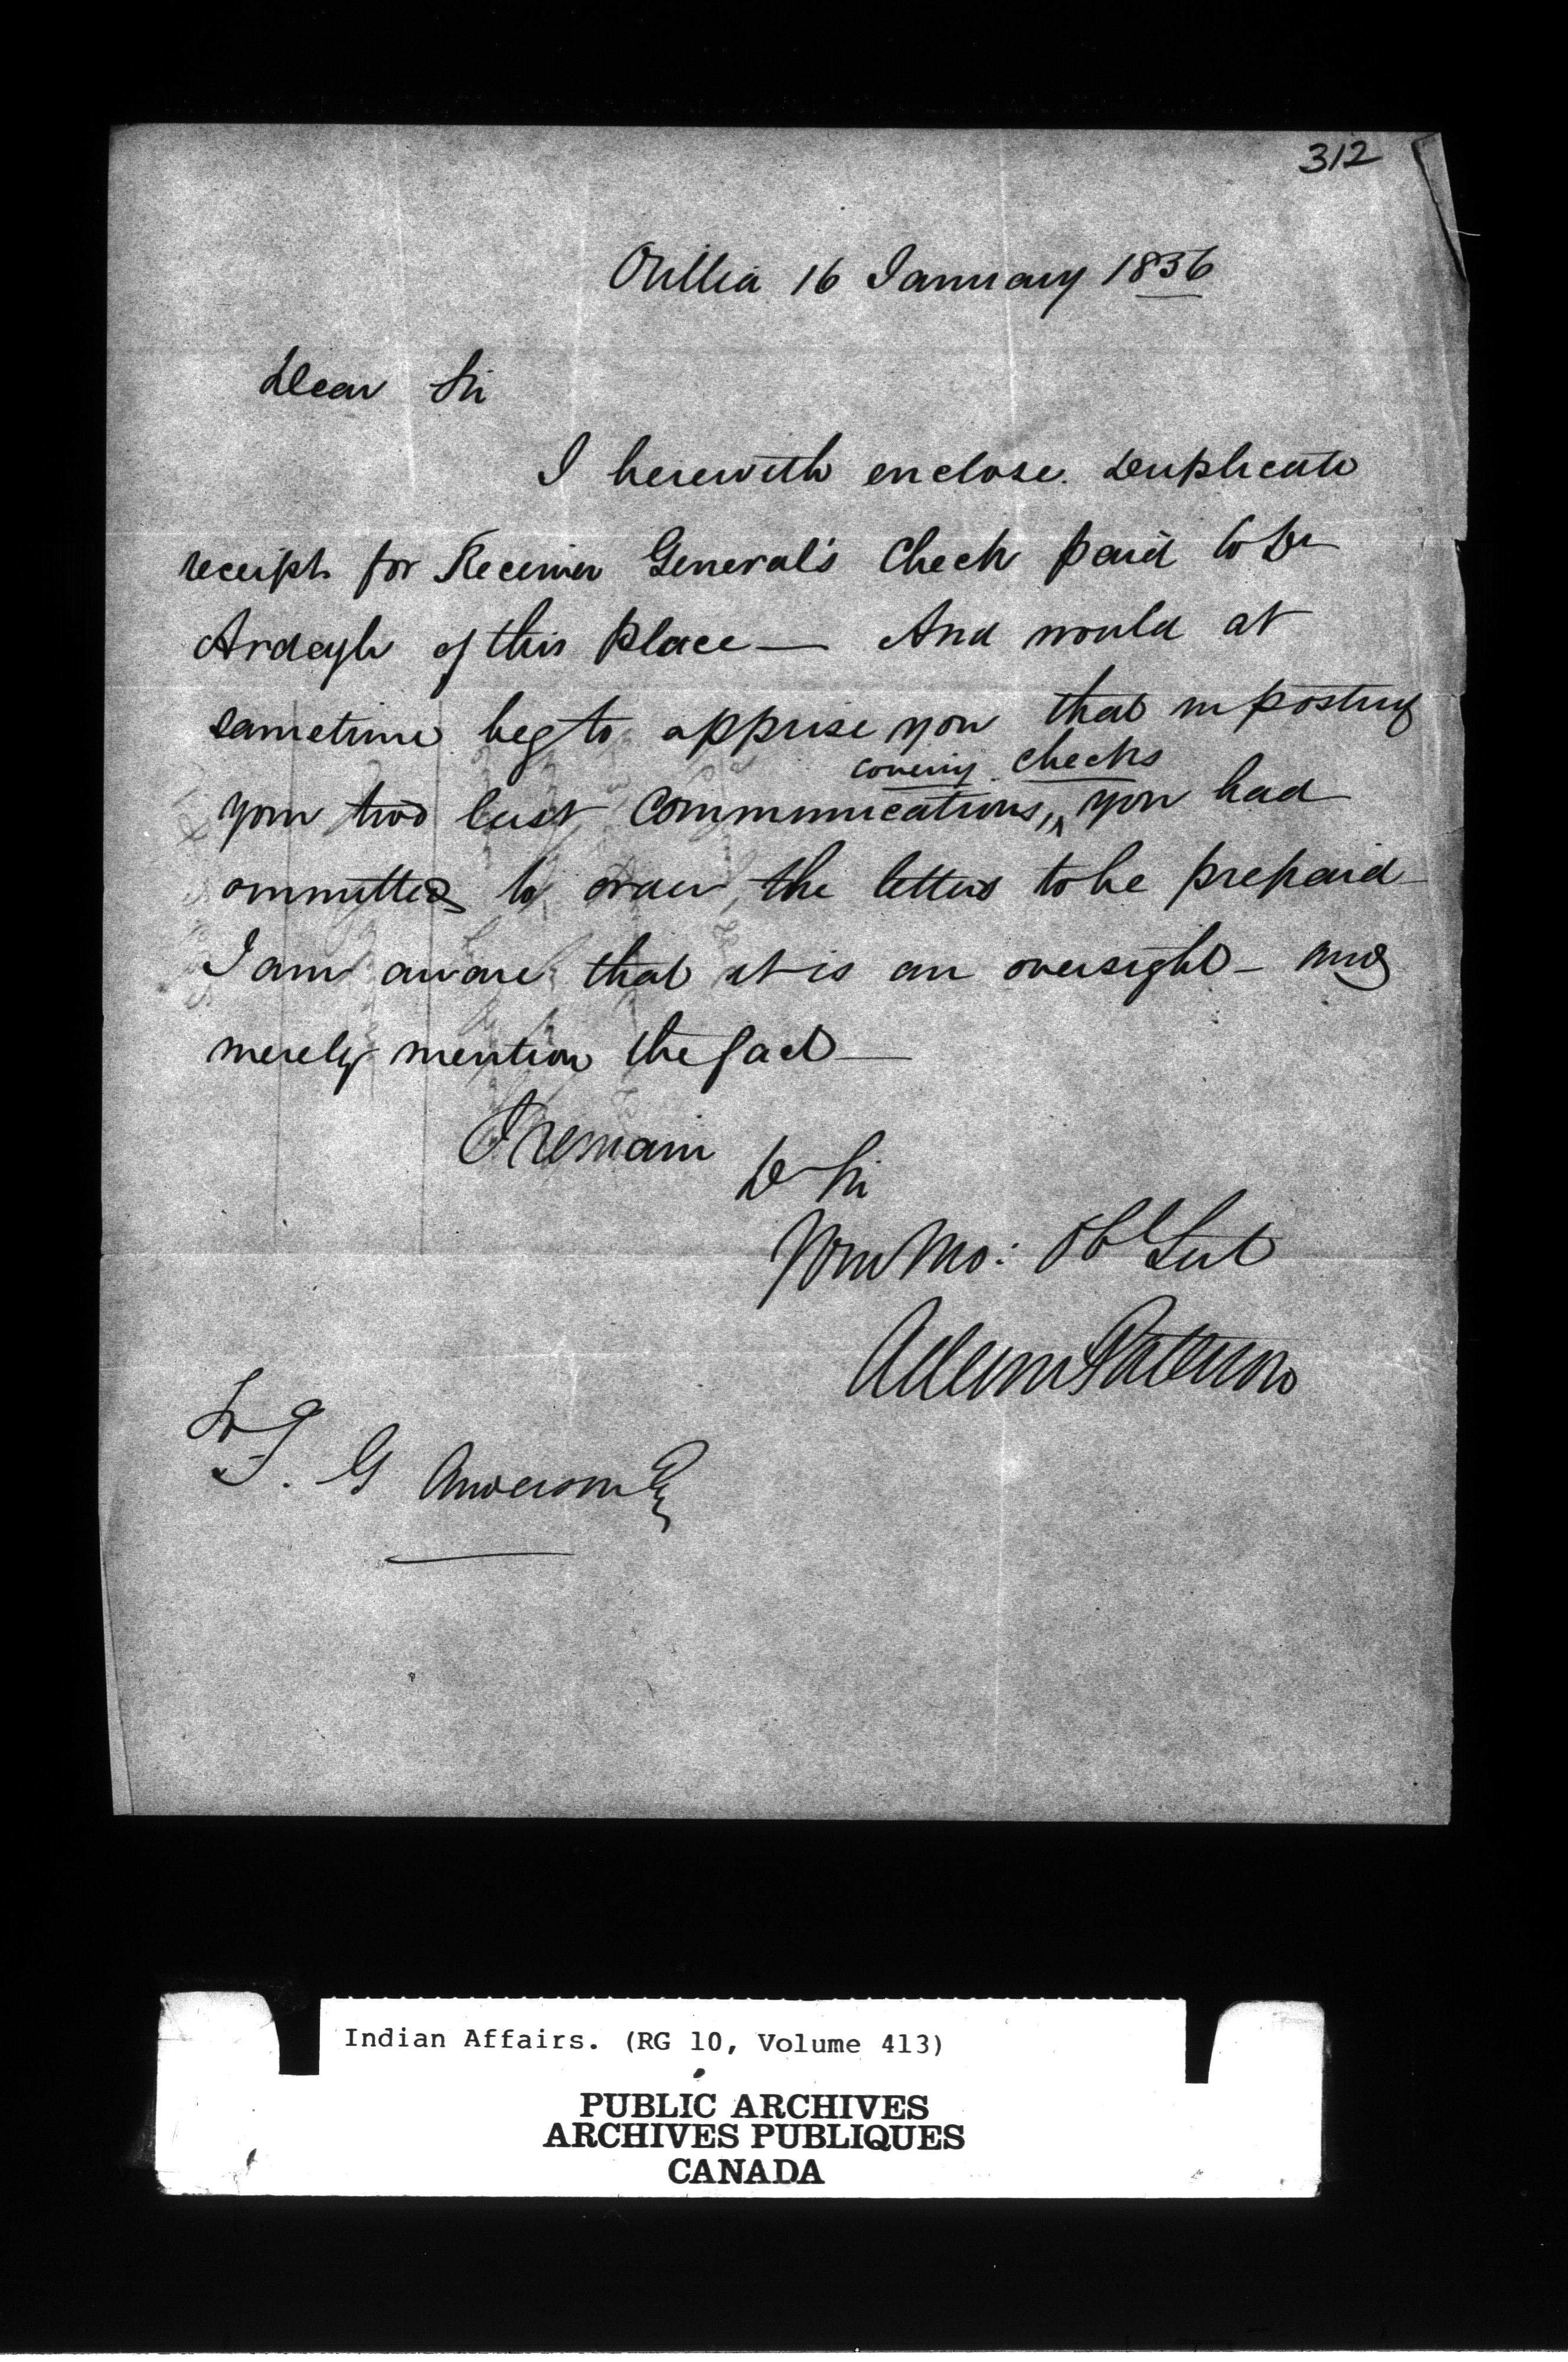 312
Orillia 16 January 1836
Dear Sir
I herewith enclose Duplicate
receipt for Receiver General's Check paid to Dr
Ardagh of this place — And would at
sametime beg to apprise you that in posting
covering checks
your two last Communications, ^ you had
ommitted to order the letters to be prepaid
I am aware that it is an oversight - and
merely mention the fact —
I remain
D Sir
Your Mo: Obt Svt
Adam Paterson
To
T. G Anderson Esq
Indian Affairs. (RG 10, Volume 413)
PUBLIC ARCHIVES
ARCHIVES PUBLIQUES
CANADA